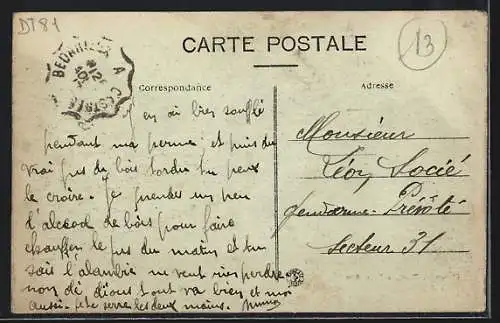 DT 81
13
BEDARIEUX A CASTRES
CARTE POSTALE
Correspondance
Adresse
j'en ai bien soufflé
pendant ma perme et puis du
vrai jus de bois tordu tu peux
le croire. Je prendrai un peu
d'alcool de bois pour faire
chauffer le jus du matin et tu
sais l'alambic ne veut rien perdre
non di dious tout va bien et moi
aussi. je te serre les deux mains.
Monsieur
Léon Socié
Gendarme - Prévôté
Secteur 31